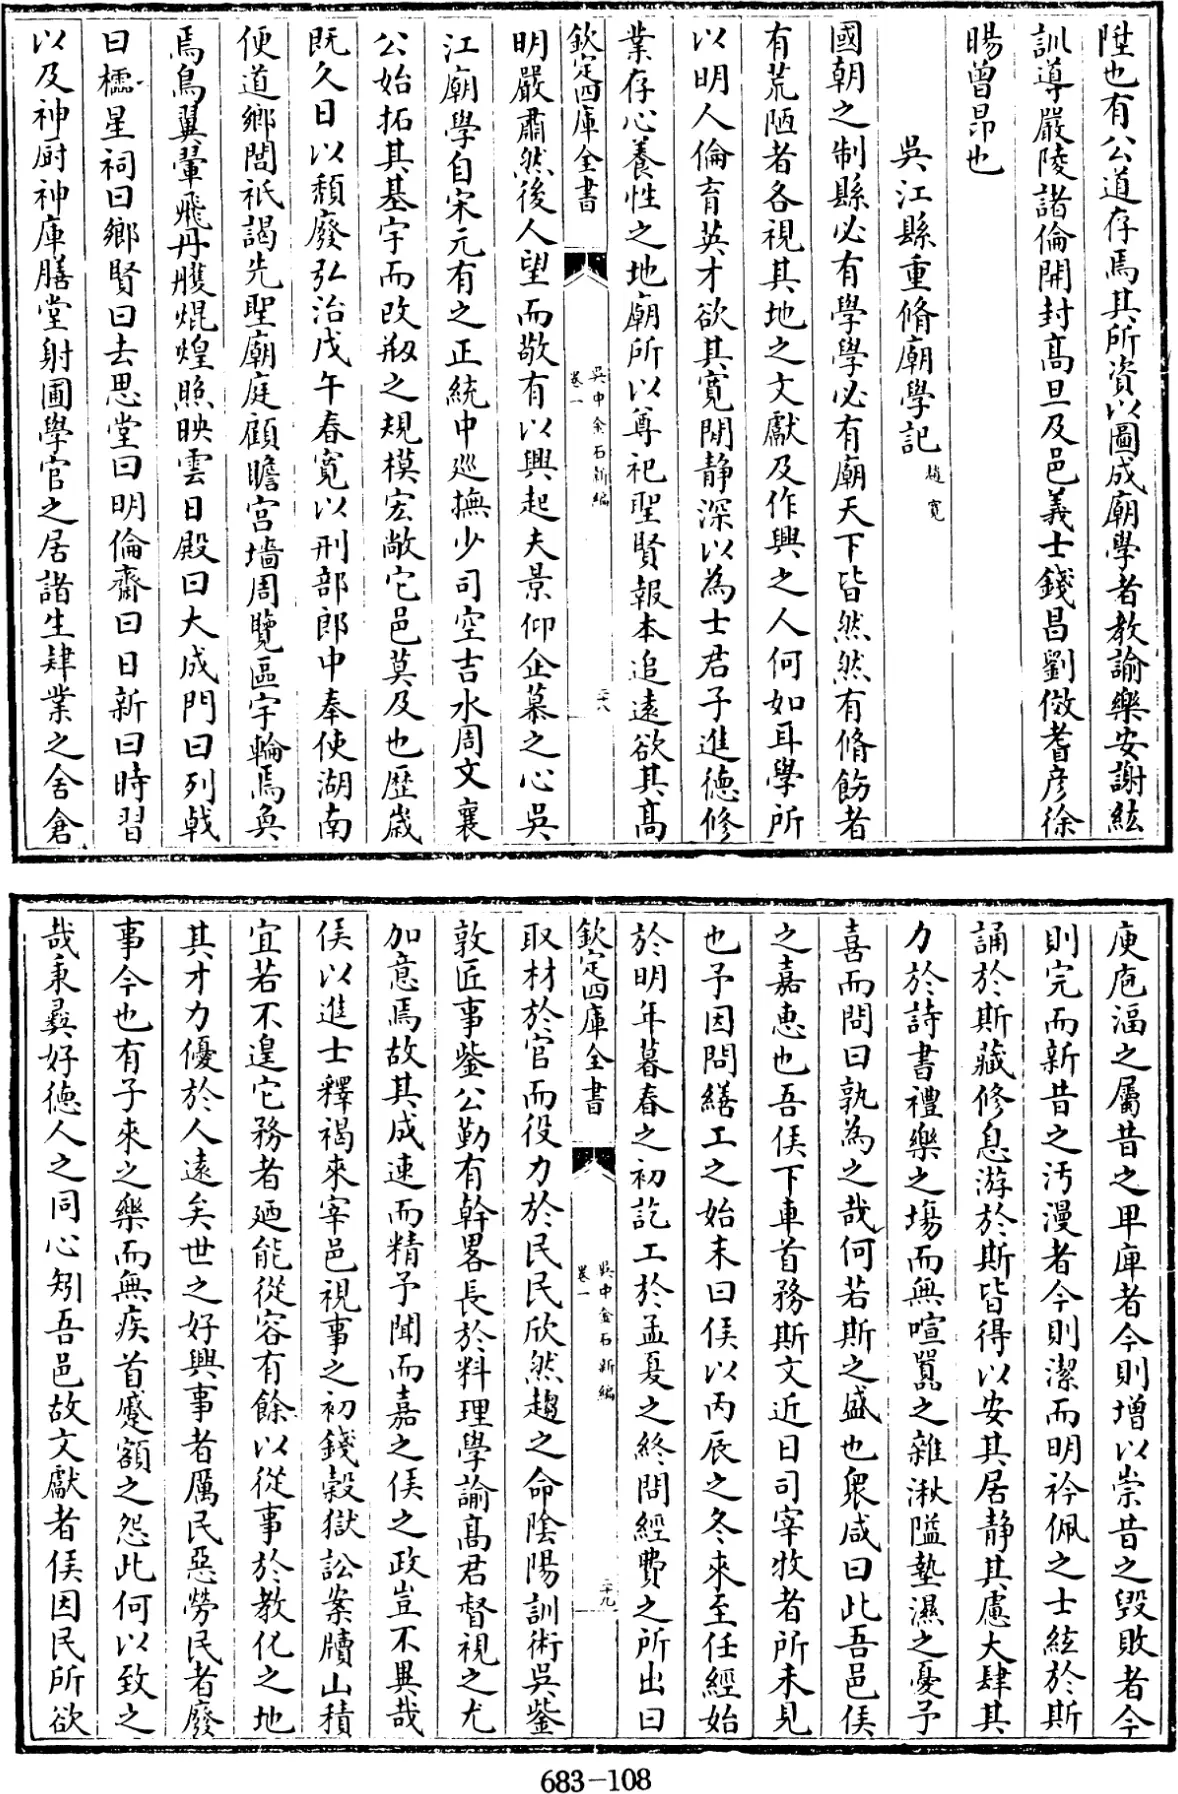 陞也有公道存焉其所資以圖成廟學者教諭樂安謝紘
訓導嚴陵諸倫開封高旦及邑義士錢昌劉倣耆彦徐
暘曾昂也
吳江縣重脩廟學記 趙寛
國朝之制縣必有學學必有廟天下皆然然有脩飭者
有荒陋者各視其地之文獻及作興之人何如耳學所
以明人倫育英才欲其寛閒静深以為士君子進徳修
業存心養性之地廟所以尊祀聖賢報本追逺欲其高
欽定四庫全書
吳中金石新編
卷一
二十八
明嚴肅然後人望而敬有以興起夫景仰企慕之心吳
江廟學自宋元有之正統中巡撫少司空吉水周文襄
公始拓其基宇而改剏之規模宏敞它邑莫及也歴歲
既久日以頽廢弘治戊午春寛以刑部郎中奉使湖南
便道鄉閭祇謁先聖廟庭顧瞻宫墻周覽區宇輪焉奐
焉鳥翼翬飛丹雘焜煌照映雲日殿曰大成門曰列戟
曰櫺星祠曰鄉賢曰去思堂曰明倫齋曰日新曰時習
以及神厨神庫膳堂射圃學官之居諸生肄業之舍倉
庾庖湢之屬昔之卑庫者今則增以崇昔之毁敗者今
則完而新昔之汚漫者今則潔而明衿佩之士絃於斯
誦於斯藏修息游於斯皆得以安其居静其慮大肆其
力於詩書禮樂之塲而無喧囂之雜湫隘墊濕之憂予
喜而問曰孰為之哉何若斯之盛也衆咸曰此吾邑侯
之嘉惠也吾侯下車首務斯文近日司宰牧者所未見
也予因問繕工之始末曰侯以丙辰之冬來至任經始
於明年暮春之初訖工於孟夏之終問經費之所出曰
欽定四庫全書
吳中金石新編
卷一
二十九
取材於官而役力於民民欣然趨之命陰陽訓術吳鋆
敦匠事鋆公勤有幹畧長於料理學諭髙君督視之尤
加意焉故其成速而精予聞而嘉之侯之政豈不異哉
侯以進士釋褐來宰邑視事之初錢榖獄訟案牘山積
宜若不遑它務者廼能從容有餘以從事於教化之地
其才力優於人遠矣世之好興事者厲民惡勞民者廢
事今也有子來之樂而無疾首蹙額之怨此何以致之
哉秉彞好徳人之同心矧吾邑故文獻者侯因民所欲
683-108